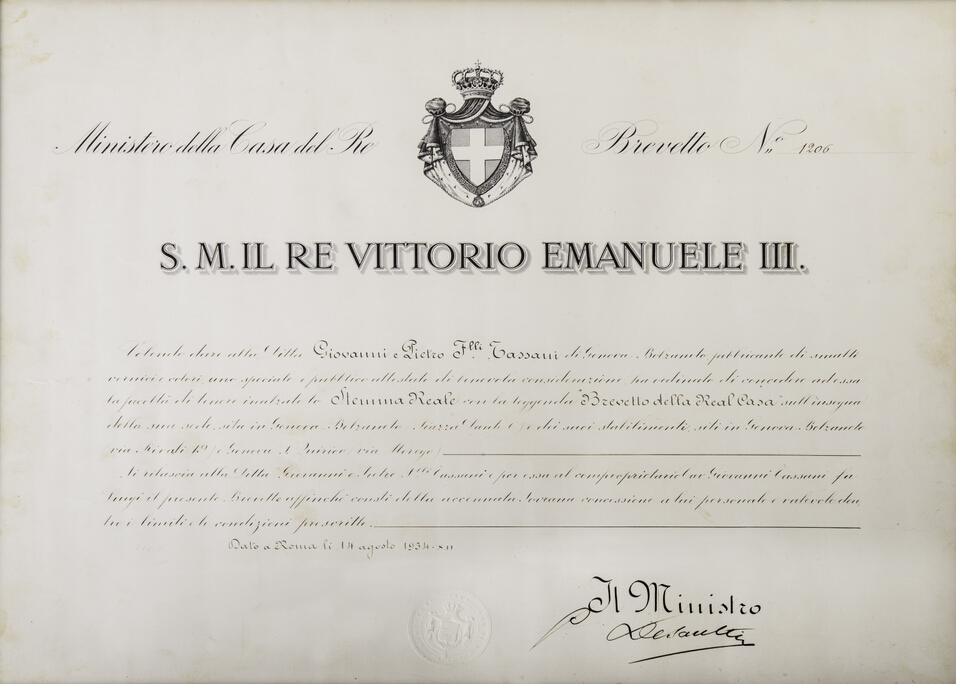 Ministero della Casa del Re
Brevetto N.º 1206
S. M. IL RE VITTORIO EMANUELE III.
Volendo dare alla Ditta Giovanni e Pietro F.lli Tassani di Genova-Bolzaneto, fabbricante di smalti
vernici e colori, uno speciale e pubblico attestato di benevola considerazione, ha ordinato di concedere ad essa
la facoltà di tenere innalzato lo Stemma Reale con la leggenda "Brevetto della Real Casa" sull'insegna
della sua sede, sita in Genova-Bolzaneto (Piazza Dante) e dei suoi stabilimenti, siti in Genova-Bolzaneto
via e Genova S. Quirico (via
Si rilascia alla Ditta Giovanni e Pietro F.lli Tassani e per essa al comproprietario Cav. Giovanni Tassani fu
Luigi il presente Brevetto affinché consti della accennata Sovrana concessione a lui personale e valevole den,
tro i limiti e le condizioni prescritte.
Dato a Roma li 14 agosto 1934-XII
Il Ministro